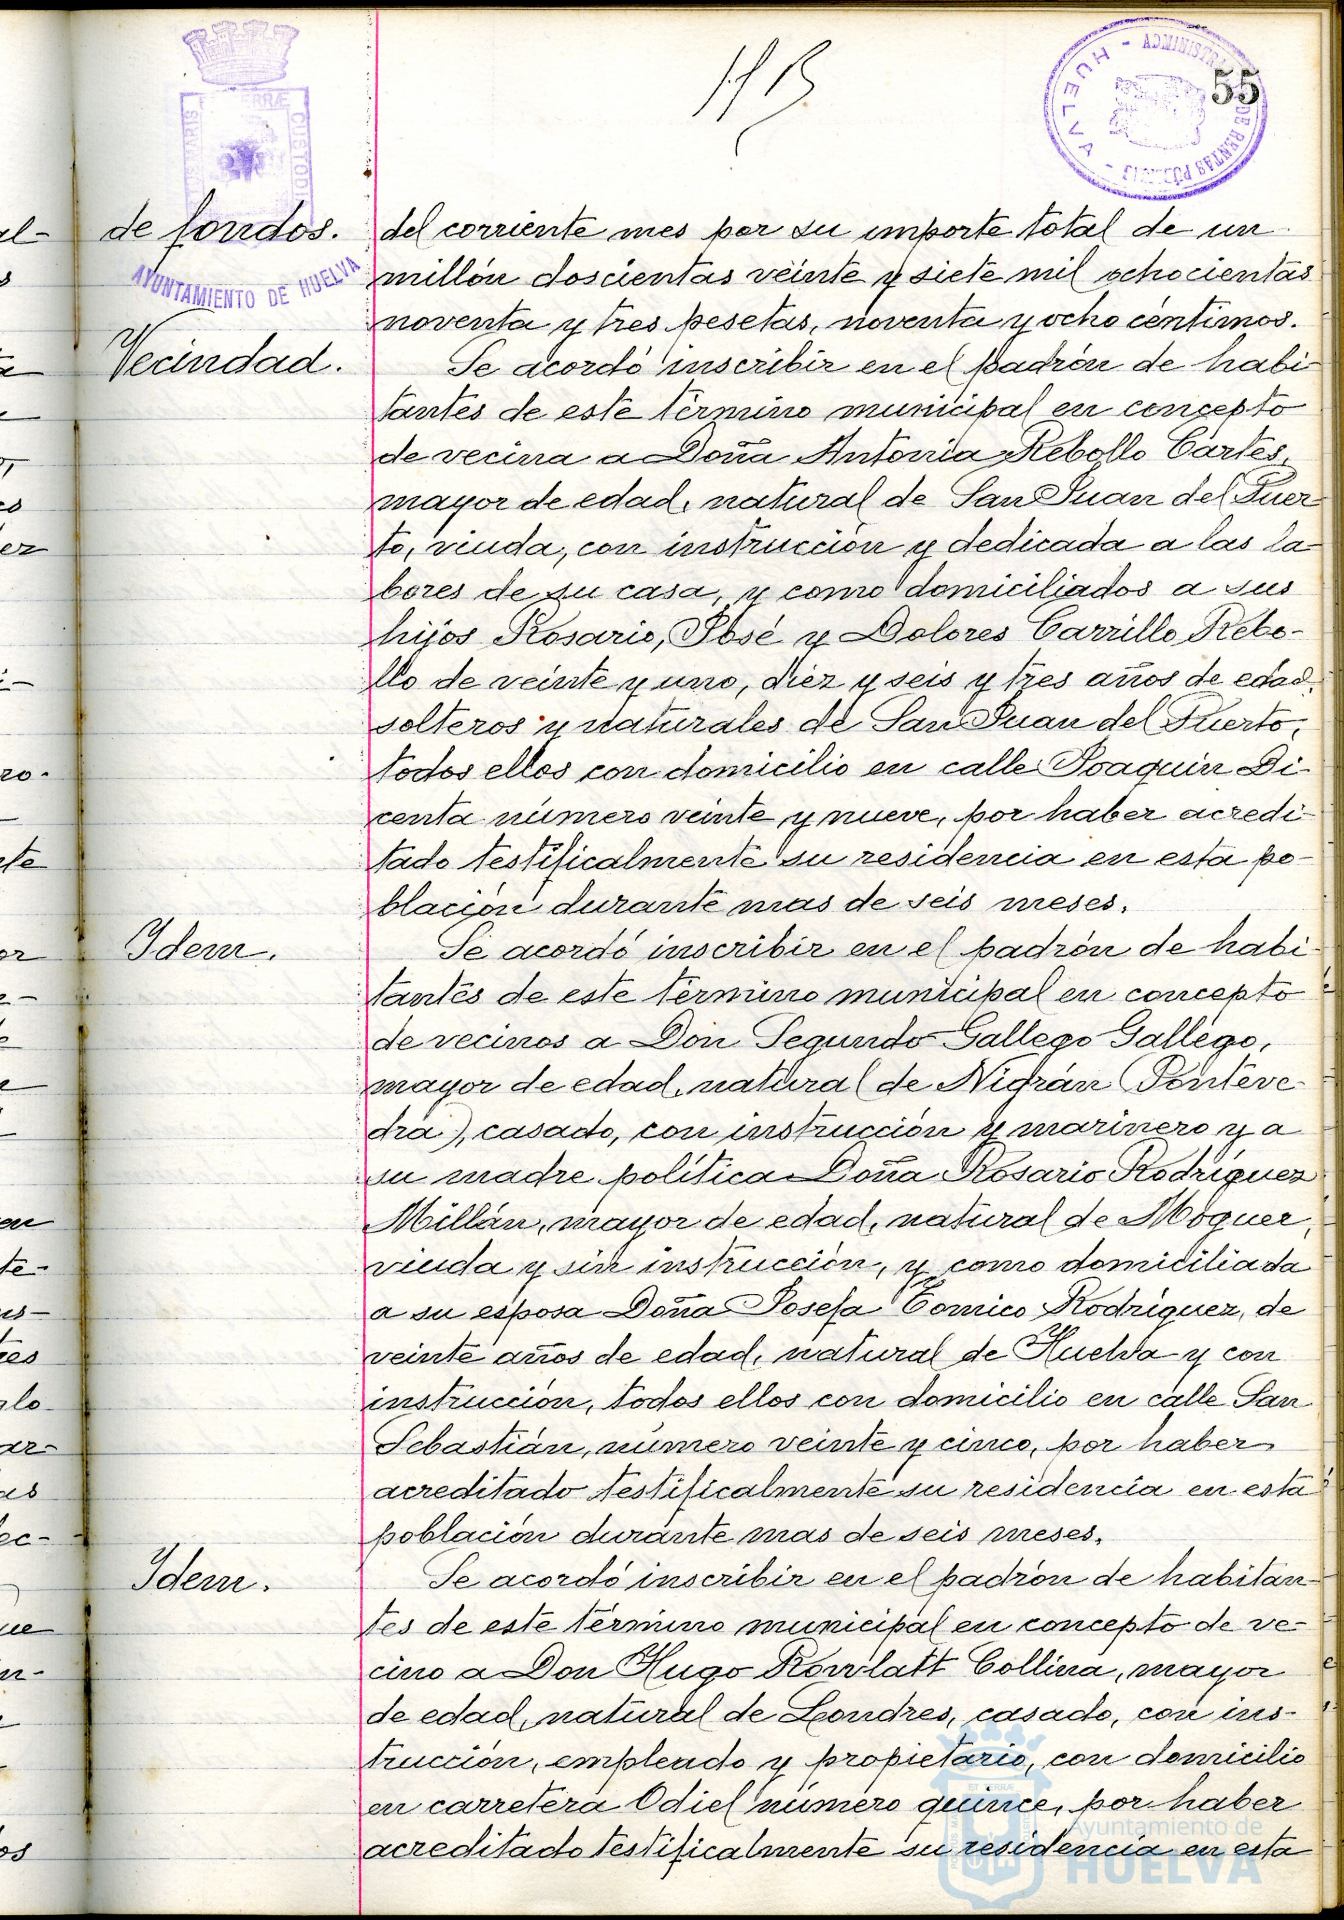 55
de fondos.
AYUNTAMIENTO DE HUELVA
HUELVA
del corriente mes por su importe total de un
millón doscientas veinte y siete mil ochocientas
noventa y tres pesetas, noventa y ocho céntimos.
Vecindad.
Se acordó inscribir en el padrón de habi-
tantes de este término municipal en concepto
de vecina a Doña Antonia Rebollo Cartes,
mayor de edad, natural de San Juan del Puer-
to, viuda, con instrucción y dedicada a las la-
bores de su casa, y como domiciliados a sus
hijos Rosario, José y Dolores Carrillo Rebo-
llo de veinte y uno, diez y seis y tres años de edad,
solteros y naturales de San Juan del Puerto,
todos ellos con domicilio en calle Joaquin Di-
centa número veinte y nueve, por haber acredi-
tado testificalmente su residencia en esta po-
blación durante mas de seis meses.
Idem.
Se acordó inscribir en el padrón de habi-
tantes de este término municipal en concepto
de vecinos a Don Segundo Gallego Gallego,
mayor de edad, natural de Nigrán (Ponteve-
dra), casado, con instrucción y marinero y a
su madre política Doña Rosario Rodríguez
Millán, mayor de edad, natural de Moguer,
viuda y sin instrucción, y como domiciliada
a su esposa Doña Josefa Tomico Rodríguez, de
veinte años de edad, natural de Huelva y con
instrucción, todos ellos con domicilio en calle San
Sebastián, número veinte y cinco, por haber
acreditado testificalmente su residencia en esta
población durante mas de seis meses.
Idem.
Se acordó inscribir en el padrón de habitan-
tes de este término municipal en concepto de ve-
cino a Don Hugo Rowlatt Collina, mayor
de edad, natural de Londres, casado, con ins-
trucción, empleado y propietario, con domicilio
en carretera Odiel número quince, por haber
acreditado testificalmente su residencia en esta
Ayuntamiento de
HUELVA